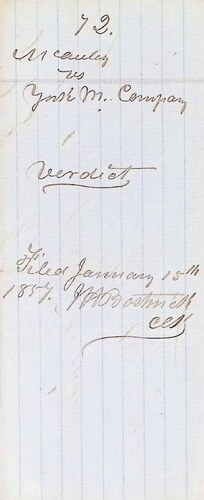 72.
McCauley
vs
York M. Company
Verdict
Filed January 15th
1857. J A Bostwick
Clk